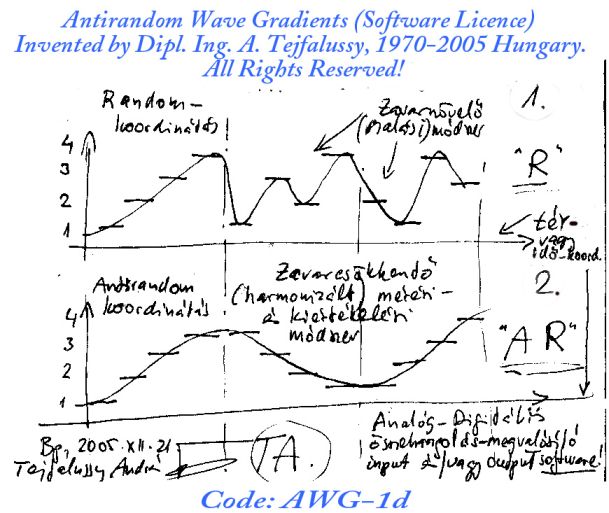 Antirandom Wave Gradients (Software Licence)
Invented by Dipl. Ing. A. Tejfalussy, 1970-2005 Hungary.
All Rights Reserved!
Random-
koordinátás
Zavarnövelő
módszer
1.
"R"
4
3
2
1
tér-
vagy
idő-koord.
Antirandom
koordinátás
Zavarcsökkentő
(harmonizált) mérési-
és kiértékelési
módszer
2.
"AR"
4
3
2
1
Bp, 2005.XII.21
Tejfalussy András
TA.
Analóg-Digitális
összehangolás-megvalósító
input és/vagy output software!
Code: AWG-1d